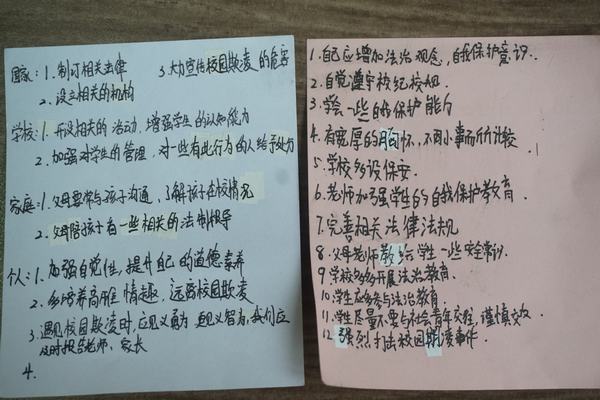 国家：1. 制订相关法律 3. 大力宣传校园欺凌的危害
2. 设立相关的机构
学校：1. 开设相关的活动，增强学生的认知能力
2. 加强对学生的管理，对一些有此行为的人给予处分
家庭：1. 父母要常与孩子沟通，了解孩子在校情况
2. 父母陪孩子看一些相关的法制报导
个人：1. 加强自觉性，提升自己的道德素养
2. 多培养高雅情趣，远离校园欺凌
3. 遇见校园欺凌时，应见义勇为更见义智为，我们应
及时报告老师、家长
4.
1. 自己应增加法治观念，自我保护意识.
2. 自觉遵守校纪校规.
3. 学会一些自我保护能力
4. 有宽厚的胸怀，不因小事而斤斤计较
5. 学校多设保安.
6. 老师加强学生的自我保护教育.
7. 完善相关法律法规
8. 父母老师教给学生一些安全常识.
9. 学校多多开展法治教育.
10. 学生应多参与法治教育.
11. 学生尽量不要与社会青年交往，谨慎交友.
12. 强烈打击校园欺凌事件.